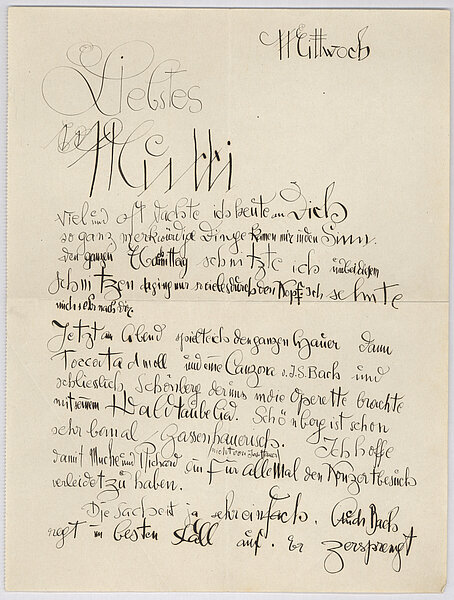 Mittwoch
Liebstes
Mutti
viel und oft dachte ich heute an Dich
so ganz merkwürdige Dinge kamen mir in den Sinn.
den ganzen schnitzte ich und bei diesen
Schnitzen ging mir so vieles durch den Kopf ich sehnte
mich sehr nach dir.
Jetzt am Abend spielte ich den ganzen Hauer dann
Toccata d moll und eine Canzona v. J. S. Bach und
schliesslich Schönberg der uns in die Operette brachte
mit seinem Waldtaubelied. Schönberg ist schon
sehr banal Gassenhauerisch. Ich hoffe
damit Muche und Richard ein für allemal den Konzertbesuch
verleidet zu haben.
Die Sache ist ja sehr einfach. Bach
regt im besten Fall auf. Er zersprengt